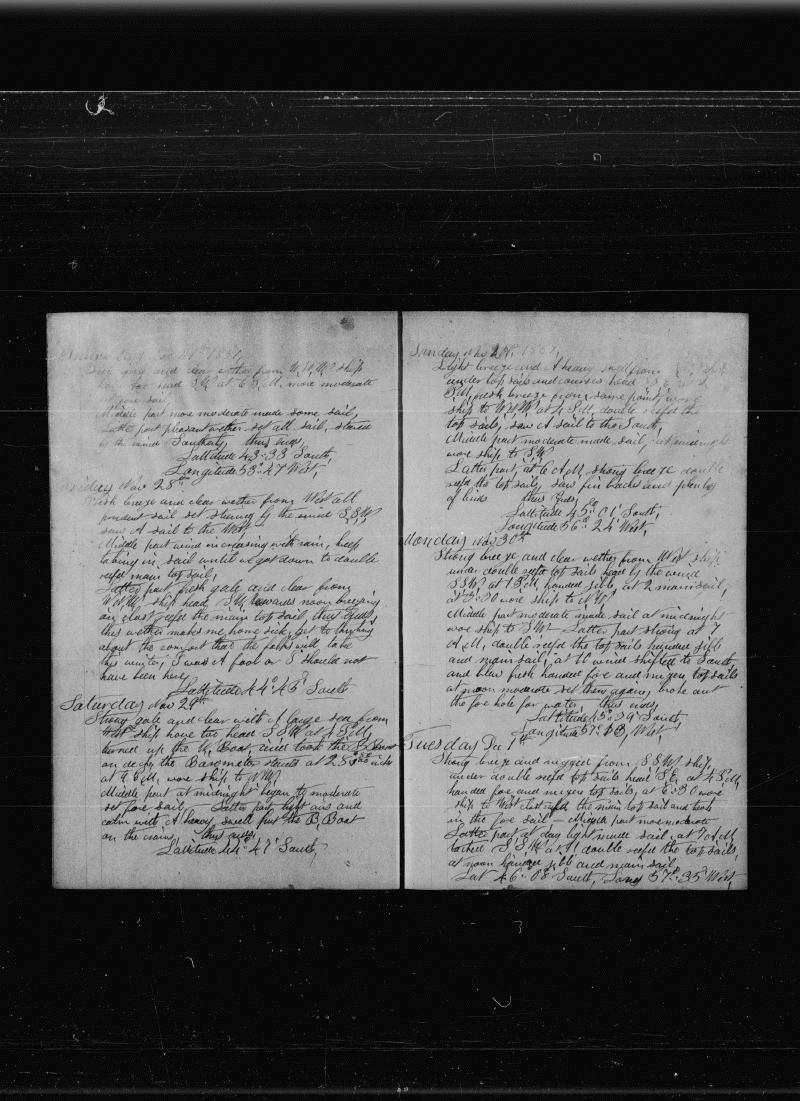 1857,
gale and clear wether from W.N.W. ship
have too head S.W. at 6 P.M. more moderate
set fore sail,
Middle part more moderate made some sail,
Latter part pleasant wether set all sail, stered
by the wind Southerly, thus ends,
Lattitude 43=33 South
Longitude 53=47 West,
Friday Nov 28th
Fresh breeze and clear wether from West all
prudent sail set stering by the wind S.S.W.
saw A sail to the West
Middle part wind increasing with rain, keep
taking in sail until we got down to double
reefd main top sail,
Latter part fresh gale and clear from
W.N.W. ship head S.W. towards noon breezing
on close refd the main top sail, thus Ends,
this wether makes me home sick, get to thinking
about the comfort that the folks will take
this winter, I was A fool or I should not
have been here,
Lattitude 44°45 South
Saturday Nov 29th
Strong gale and clear with A large sea from
W.S.W. ship have too head S.S.W. at 4 P.M.
turned up the W. Boat, and took the B. Boat
on deck, the Barometer stands at 28 inches
at 6 P.M. wore ship to N.W.
Middle part at midnight began to moderate
set fore sail, Latter part light airs and
calm with A heavy swell put the B, Boat
on the cranes, thus ends,
Lattitude 44°47 South,
Sunday
Light breeze and A heavy swell from
under top sails and courses head
P.M. fresh breeze from same point, wore
ship to W.N.W. at 4 P.M. double reefd the
top sails, saw A sail to the South,
Middle part moderate made sail, at midnight
wore ship to S.W.
Latter part, at 6 A.M. strong breeze double
refd the top sails, saw fin backs and plenty
of birds thus Ends,
Lattitude 45°01 South,
Longitude 56°24 West,
Monday Nov 30th
Strong breeze and clear wether from West ship
under double refd top sails head by the wind
S.S.W. at 1 P.M. handed jibb, at 2 main sail,
at 3=30 wore ship to N.W.
Middle part moderate made sail at midnight
wore ship to S.W. Latter part strong at
A.M. double refd the top sails handed jibb
and main sail, at 10 wind shifted to South,
and blew fresh handed fore and mizen top sails
at noon moderate set them again, broke out
the fore hole for water, thus ends,
Lattitude South
Longitude 57° West
Tuesday Dec 1st
Strong breeze and rugged from S.S.W. ship,
under double refd top sails head S.E. at 4 P.M.
handed fore and mizen top sails, at 6=30 wore
ship to West close refd the main top sail and took
in the fore sail — Middle part more moderate
Latter part at day light made sail, at 7 A.M.
tacked S.S.W. double refd the top sails,
at noon handed jibb and main sail
Lat 46°08 South, Long 57°35 West,